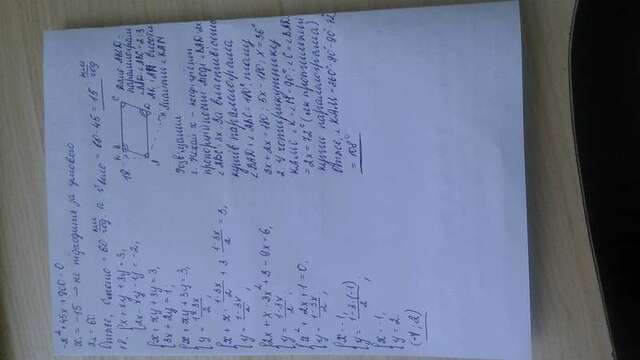 -x² + 45x + 900 = 0
x₁ = -15 - не підходить за умовою
x₂ = 60.
Отже, = 60 км/год, а = 60 - 45 = 15 км/год
18. {x + xy + 3y = 3,
{2x - xy - y = -2,
{x + xy + 3y = 3,
{3x + 2y = 1,
{x + xy + 3y = 3,
{y = (1-3x)/2,
{x + x · (1-3x)/2 + 3 · (1-3x)/2 = 3,
{y = (1-3x)/2,
{2x + x - 3x² + 3 - 9x = 6,
{y = (1-3x)/2,
{x² + 2x + 1 = 0,
{y = (1-3x)/2,
{x = -1,
{y = (1-3·(-1))/2,
{x = -1,
{y = 2.
(-1; 2)
18
B
C
A
Дано: ABCD -
паралелограм
∠BAD : ∠ABC = 2:3
висоти
Знайти ∠KAM
Розв'язання
1. Нехай x - коефіцієнт
пропорційності, тоді ∠BAD = 2x
∠ABC = 3x. За властивістю
кутів паралелограма
∠BAD + ∠ABC = 180°, тому
3x + 2x = 180; 5x = 180; x = 36°
2. У чотирикутнику
KAMC ∠K = ∠M = 90°, ∠C = ∠BAD
= 2x = 72° (як протилежні
кути паралелограма)
Отже, ∠KAM = 360° - 90° - 90° - 72°
= 108°